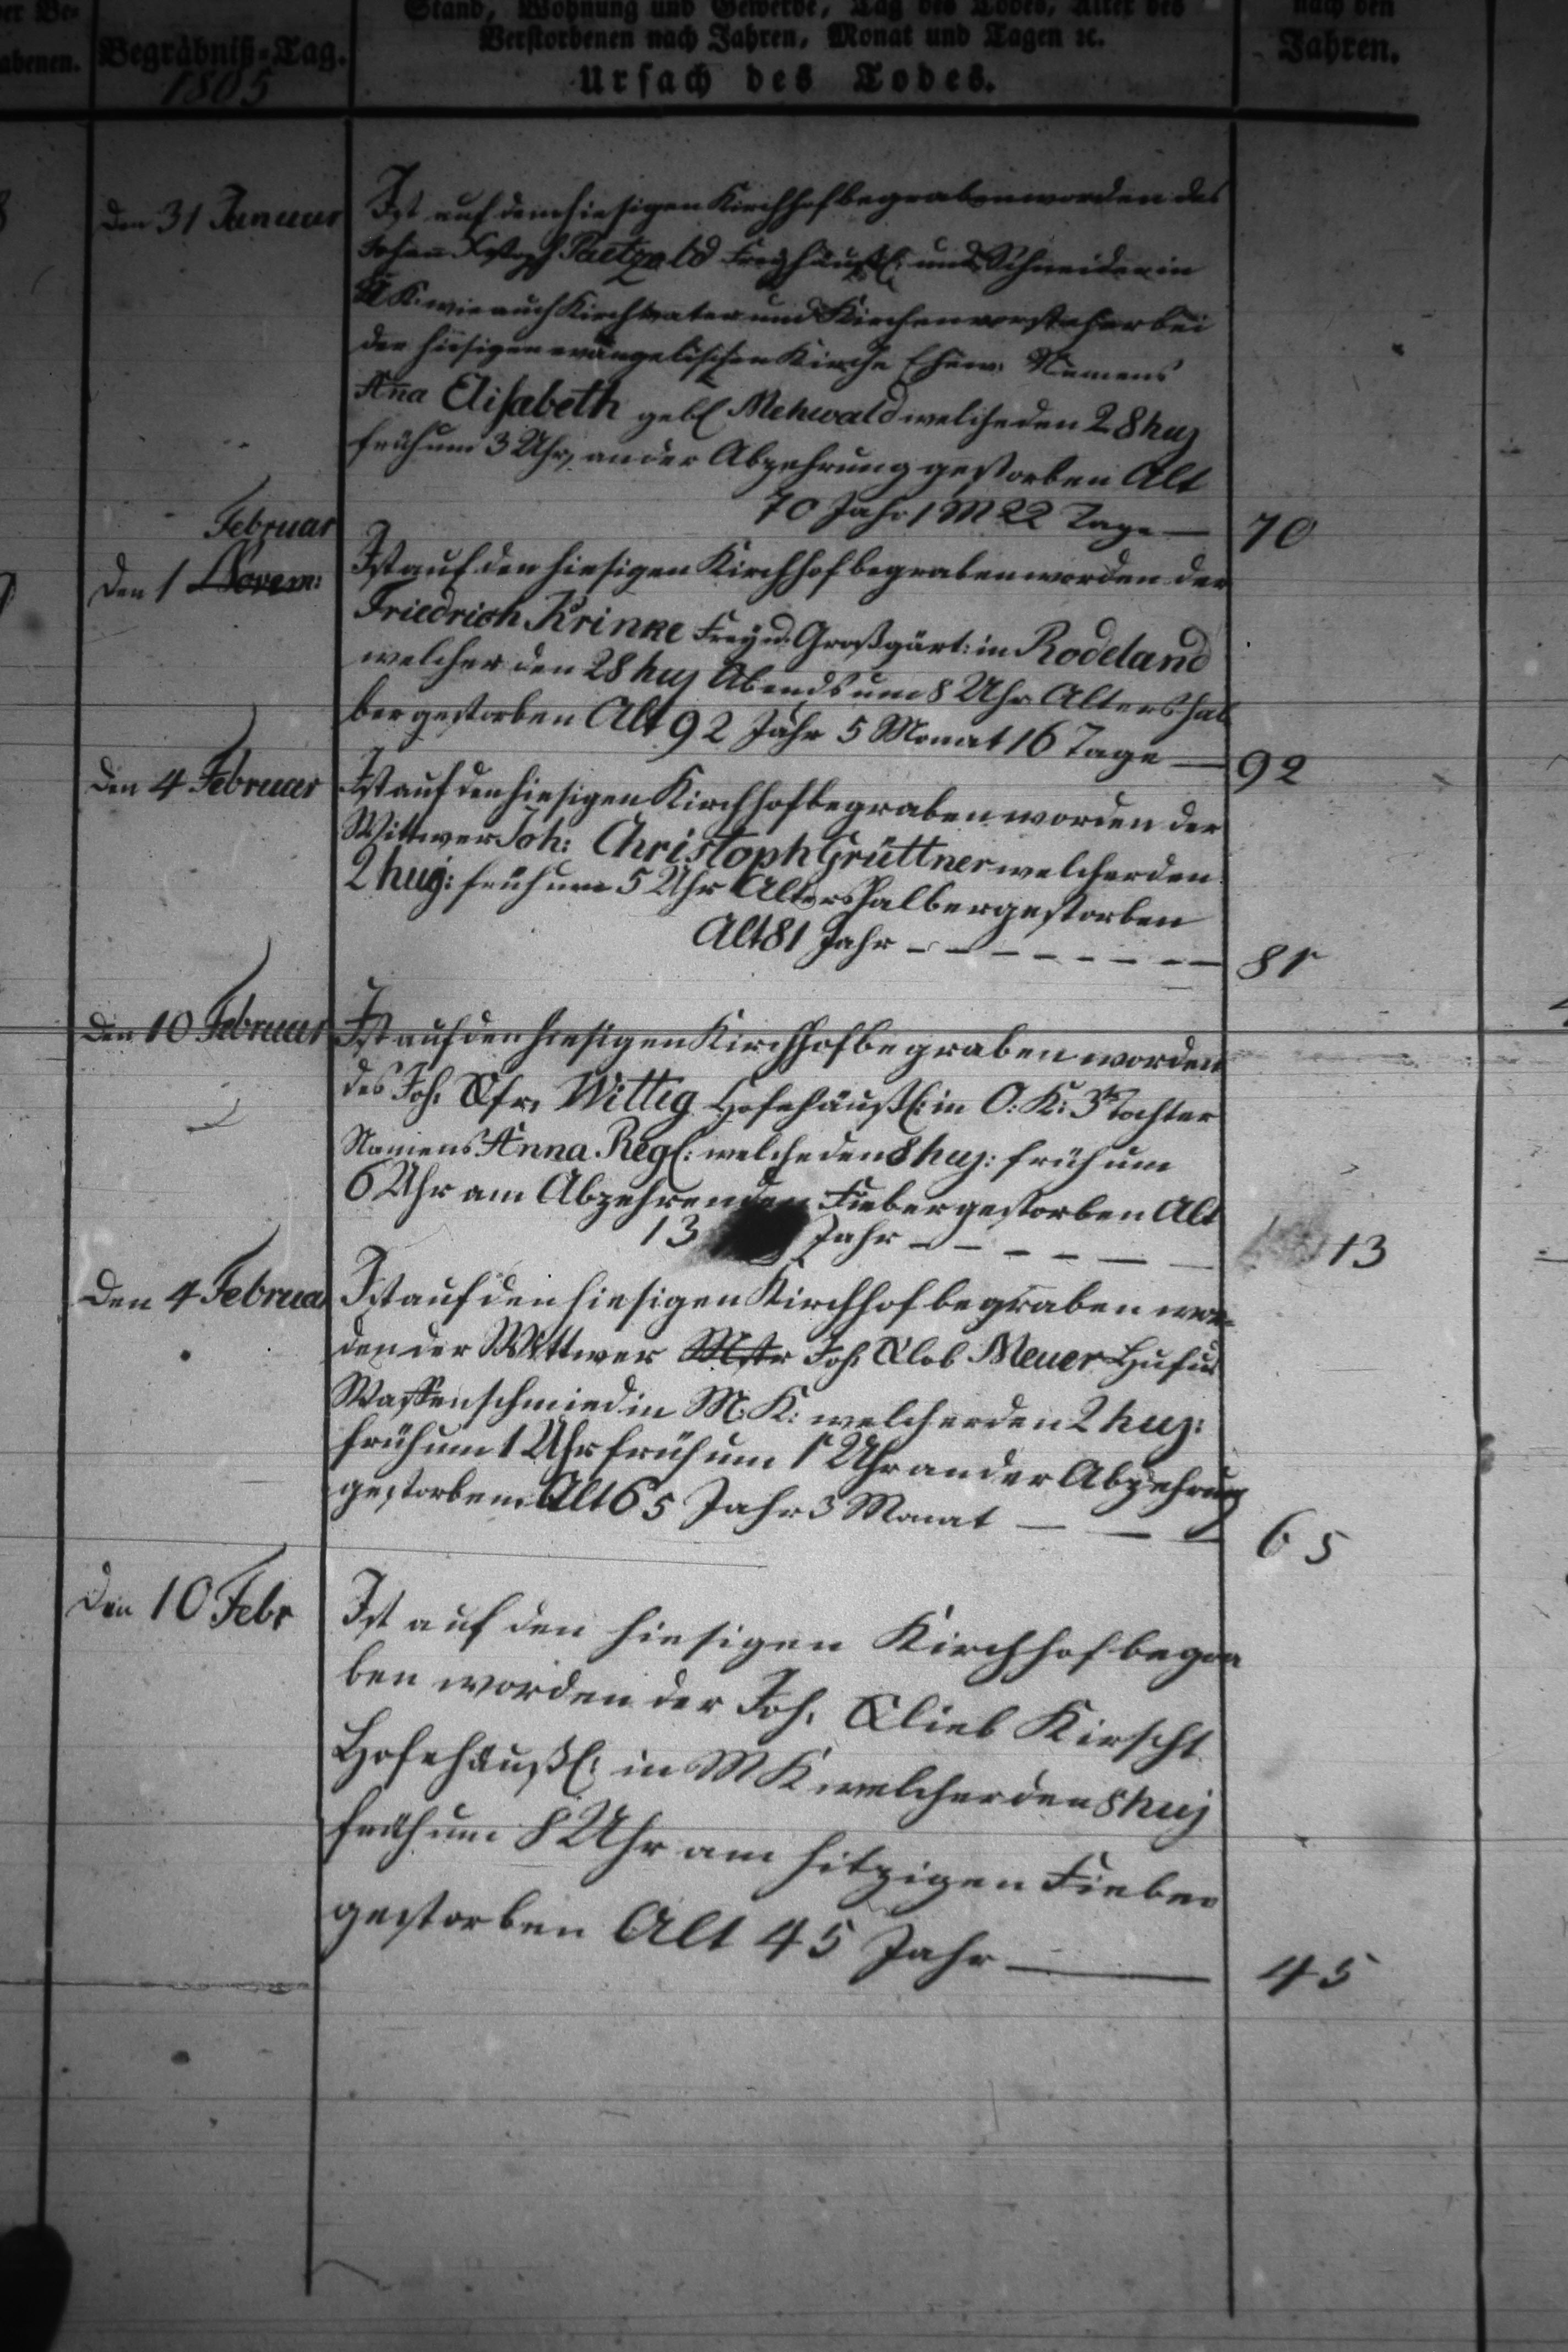 Stand, Wohnung und Gewerbe, Tag des Todes, Alter des
Verstorbenen nach Jahren, Monat und Tagen ꝛc.
Ursach des Todes.
Begräbniß-Tag.
1805
nach den
Jahren.
den 31 Januar
Ist auf dem hiesigen Kirchhof begraben worden des
Paetzold Freyhäußl: und Schneider in
K: wie auch Kirchvater und Kirchenvorsteher bei
der hiesigen evangelischen Kirche Ehew: Namens
Ana Elisabeth geb. Mehwald welche den 28 huj
früh um 3 Uhr, an der Abzehrung gestorben Alt
70 Jahr 1 M 22 Tage — 70
Februar
Den 1 Novem:
Ist auf den hiesigen Kirchhof begraben worden der
Friedrich Krinke Frey u: Großgärt: in Rodeland
welcher den 28 huj Abends um 8 Uhr Alters hal
ber gestorben Alt 92 Jahr 5 Monat 16 Tage — 92
Den 4 Februar
Ist auf den hiesigen Kirchhof begraben worden der
Wittwer Joh: Christoph Grüttner welcher den
2 huj: früh um 5 Uhr Altershalber gestorben
Alt 81 Jahr — 81
Den 10 Februar
Ist auf den hiesigen Kirchhof begraben worden
des Joh. Gfr. Wittig Hofehäußl: in O: K: 3te Tochter
Namens Anna Regl: welche den 8 huj: früh um
6 Uhr am Abzehrenden Fieber gestorben Alt
13 Jahr — 13
Den 4 Februar
Ist auf den hiesigen Kirchhof begraben wor-
den der Wittwer Mstr Joh. Glob Meuer Huf u:
Waffenschmied in M: K: welcher den 2 huj:
früh um 1 Uhr früh um 1 Uhr an der Abzehrung
gestorben Alt 65 Jahr 3 Monat — 65
Den 10 Febr
Ist auf den hiesigen Kirchhof begra
ben worden der Joh. Glieb Kirscht
Hofehäußl: in M K welcher den 8 huj
früh um 8 Uhr am hitzigen Fieber
gestorben Alt 45 Jahr — 45